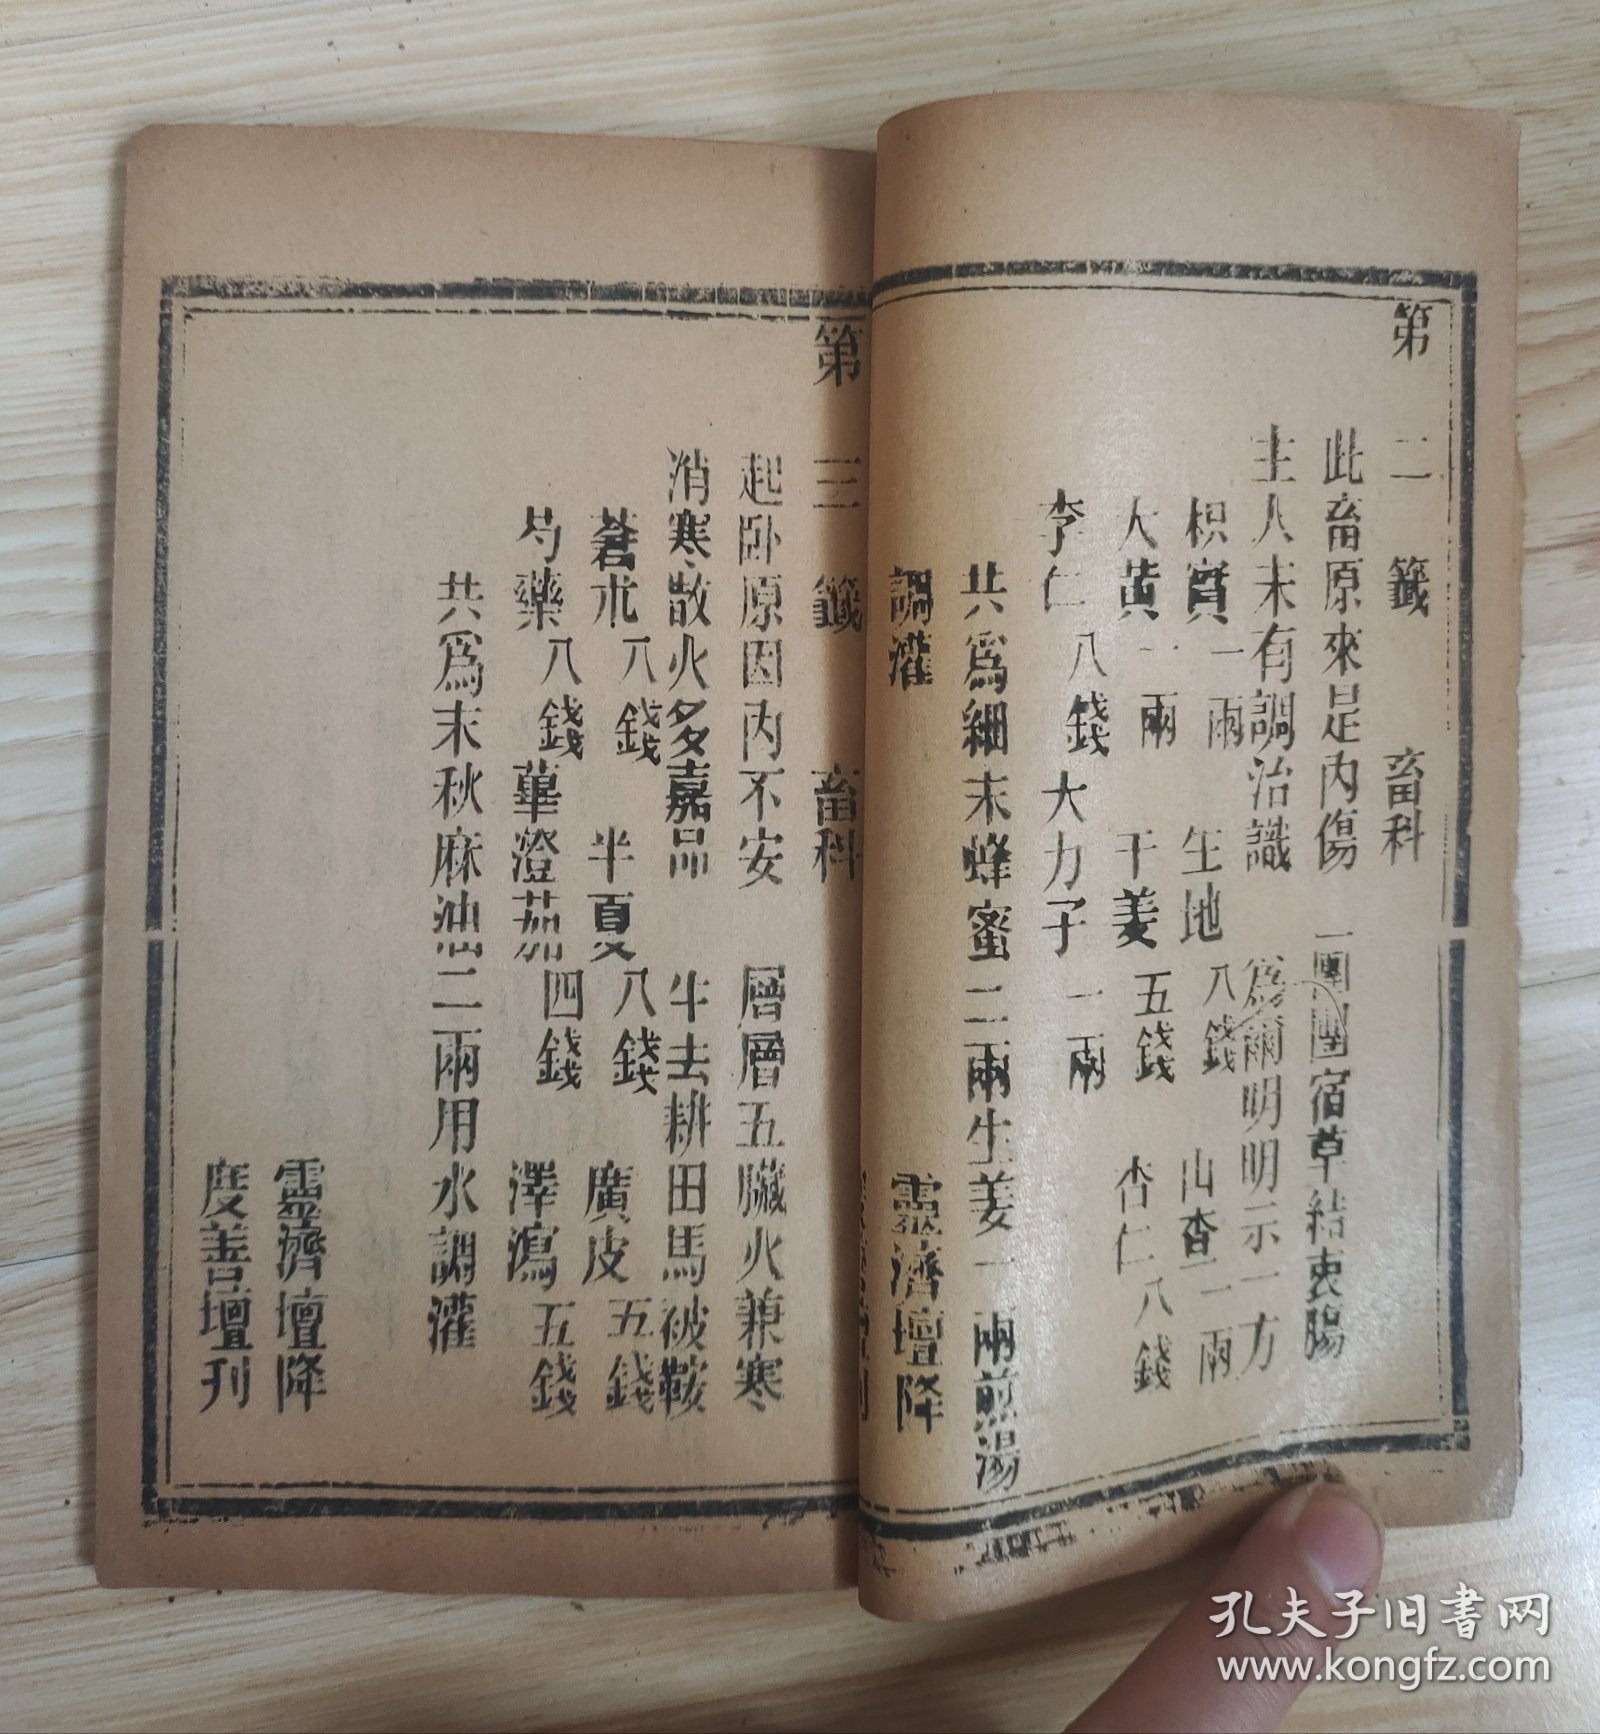 第二籤 畜科
此畜原來是內傷 一團團宿草結衷腸
主人未有調治識 爲爾明明示一方
枳實一兩 生地八錢 山查二兩
大黃一兩 干姜五錢 杏仁八錢
李仁八錢 大力子一兩
共爲細末蜂蜜二兩生姜一兩煎湯
調灌 靈濟壇降
第三籤 畜科
起卧原因內不安 層層五臟火兼寒
消寒散火多嘉品 牛去耕田馬被鞍
蒼朮八錢 半夏八錢 廣皮五錢
芍藥八錢 蓽澄茄四錢 澤瀉五錢
共爲末秋麻油二兩用水調灌
靈濟壇降
度善壇刊
孔夫子旧書网
www.kongfz.com